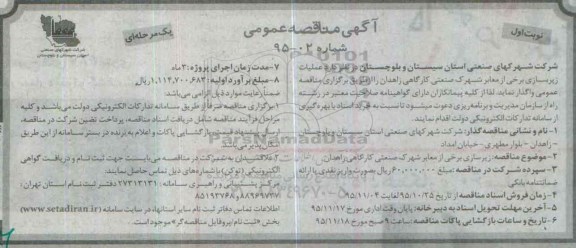 نوبت اول
آگهی مناقصه عمومی
شماره ۰۲-۹۵
یک مرحله‌ای
شرکت شهرکهای صنعتی استان سیستان و بلوچستان در نظر دارد عملیات
زیرسازی برخی از معابر شهرک صنعتی کارگاهی زاهدان را از طریق برگزاری مناقصه
عمومی واگذار نماید. لذا از کلیه پیمانکاران دارای گواهینامه صلاحیت معتبر در رشته
راه از سازمان مدیریت و برنامه ریزی دعوت میشود تا نسبت به خرید اسناد با بهره گیری
از سامانه تدارکات الکترونیکی دولت اقدام نمایند.
۱- نام و نشانی مناقصه گذار: شرکت شهرکهای صنعتی استان سیستان و بلوچستان
- زاهدان - بلوار مطهری - خیابان امداد
۲- موضوع مناقصه: زیرسازی برخی از معابر شهرک صنعتی کارگاهی زاهدان.
۳- سپرده شرکت در مناقصه: مبلغ ۶۰،۰۰۰،۰۰۰ ریال بصورت واریز نقدی یا ارائه
ضمانتنامه بانکی
۴- زمان فروش اسناد مناقصه: از تاریخ ۹۵/۱۰/۲۵ لغایت ۹۵/۱۱/۰۴
۵- آخرین مهلت تحویل اسناد به دبیرخانه: پایان وقت اداری مورخ ۹۵/۱۱/۱۷
۶- تاریخ و ساعات بازگشایی پاکات مناقصه: ساعت ۹ صبح مورخ ۹۵/۱۱/۱۸
۷- مدت زمان اجرای پروژه: ۳ ماه
۸- مبلغ برآورد اولیه: ۱,۱۱۴,۷۰۰,۶۸۳ ریال
ضمنا رعایت موارد ذیل الزامی می‌باشد.
۱- برگزاری مناقصه صرفا از طریق سامانه تدارکات الکترونیکی دولت می‌باشد و کلیه
مراحل فرآیند مناقصه شامل دریافت اسناد مناقصه، پرداخت تضمین شرکت در مناقصه،
ارسال پیشنهاد قیمت، بازگشایی پاکات و اعلام به برنده در بستر سامانه از این طریق
امکان پذیر می‌باشد
۲- علاقمندان به شرکت در مناقصه می‌بایست جهت ثبت نام و دریافت گواهی
الکترونیکی (توکن) با شماره‌های ذیل تماس حاصل نمایند.
مرکز پشتیبانی و راهبری سامانه: ۲۷۳۱۳۱۳۱ دفتر ثبت نام استان تهران:
۸۸۹۶۹۷۳۷ و ۸۵۱۹۳۷۶۸
اطلاعات تماس دفاتر ثبت نام سایر استانها، در سایت سامانه (www.setadiran.ir)
بخش «ثبت نام/پروفایل مناقصه گر» موجود است.
ParsNamadData